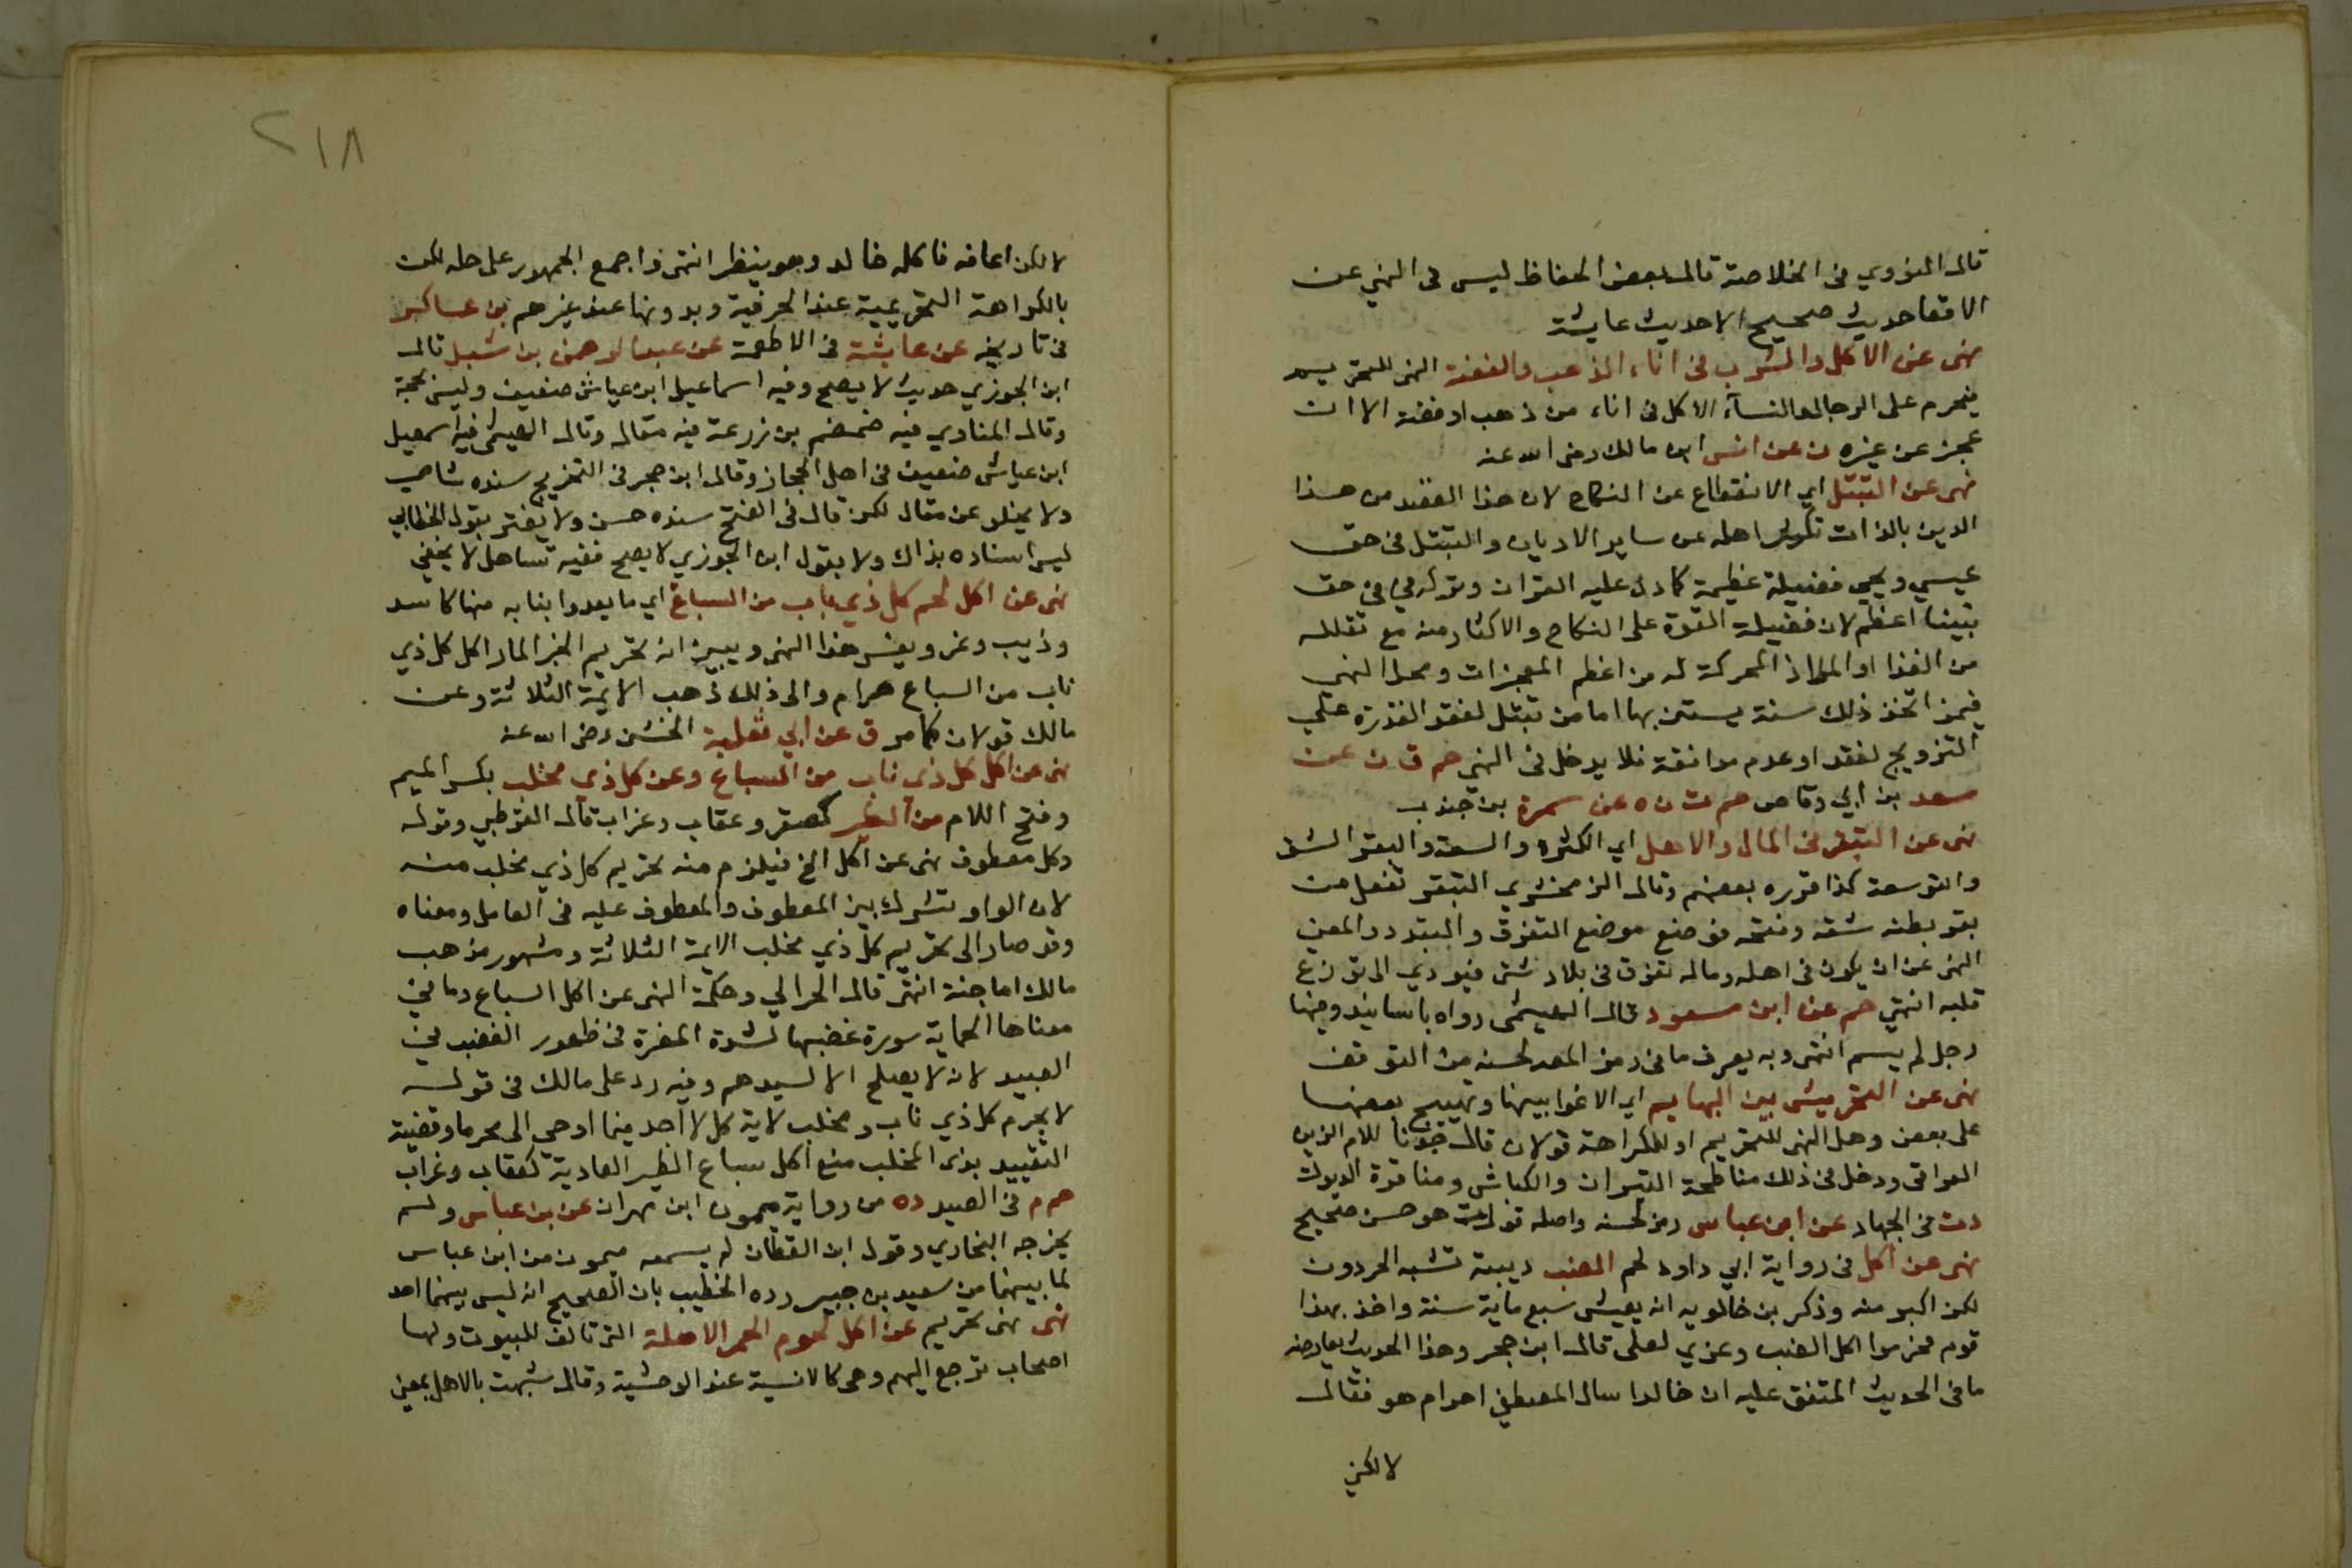 قال النووي في الخلاصة قال بعض الحفاظ ليس في النهي عن
الاقعا حديث صحيح الا حديث عايشة
نهى عن الاكل والشرب في اناء الذهب والفضة النهي للتحريم
فيحرم على الرجال والنساء الاكل في اناء من ذهب او فضة الا ان
عجز عن غيره ن عن انس ابن مالك رضي الله عنه
نهى عن التبتل اي الانقطاع عن النكاح لان هذا الفقد من هذا
الدين بالذات اهله عن ساير الاديان والتبتل في حق
عيسي ويحي فضيلة عظيمة كما دل عليه القران وتركه في حق
نبينا اعظم لان فضيلة القوة على النكاح والاكثار منه مع تقلله
من الغذا او الملاذ المحركة له من اعظم المعجزات ومحل النهى
فيمن اتخذ ذلك سنة يستن بها اما من تبتل لفقد القدرة علي
التزويج لفقد او عدم موافقة فلا يدخل في النهي حم ق ن عن
سعد بن ابي وقاص حم ت ن ه عن سمرة بن جندب
نهى عن التبقر في المال والاهل اي الكثرة والسعة والبقر الشق
والتوسعة كذا قرره بعضهم وقال الزمخشري التبقر تفعل من
بقر بطنه شقه وفتحه فوضع موضع التفرق والتبدد والمعني
النهى عن ان يكون في اهله وماله تفرق في بلاد شتى فيودي الى توزع
قلبه انتهي حم عن ابن مسعود قال الهيثمى رواه باسانيد وفيها
رجل لم يسم انتهى وبه يعرف ما في رمز المص لحسنه من التوقف
نهى عن التحريش بين البهايم اي الاغوا بينها وتهييج بعضها
على بعض وهل النهى للتحريم او للكراهة قولان قال للام الزين
العراقي ودخل في ذلك مناطحة الثيران والكباش ومناقرة الديوك
د ت في الجهاد عن ابن عباس رمز لحسنه واصله قول ت هو حسن صحيح
نهى عن اكل في رواية ابي داود لحم الضب دبيبة تشبه الحردون
لكن اكبر منه وذكر بن خالويه انه يعيش سبع ماية سنة واخذ بهذا
قوم فحرموا اكل الضب وعزي لعلى قال ابن حجر وهذا الحديث يعارضه
ما في الحديث المتفق عليه ان خالدا سال المصطفي احرام هو فقال
لا لكني
٢١٨
لا لكن اعافه فاكله خالد وهو ينظر انتهى واجمع الجمهور على حله لكن
بالكراهة التحريمية عند الحرفية وبدونها عند غيرهم بن عساكر
في تاريخه عن عايشة في الاطعمة عن عبد الرحمن بن شبل قال
ابن الجوزي حديث لا يصح وفيه اسماعيل ابن عياش ضعيف وليس بحجة
وقال المناوي فيه ضمضم بن زرعة فيه مقال وقال الهيثمى فيه اسمعيل
ابن عياش ضعيف في اهل الحجاز وقال ابن حجر في التخريج سنده شامي
ولا يخلو عن مقال لكن قال في الفتح سنده حسن ولا يغتر بقول الخطابي
ليس اسناده بذاك ولا بقول ابن الجوزي لا يصح ففيه تساهل لا يخفي
نهى عن اكل لحم كل ذي ناب من السباع اي ما يعدوا بنابه منها كاسد
وذيب ونمر ويفسر هذا النهي ويبين انه تحريم الخبر المار اكل كل ذي
ناب من السباع حرام والى ذلك ذهب الايمة الثلاثة وعن
مالك قولان كما مر ق عن ابي ثعلبة الخشنى رضي الله عنه
نهى عن اكل كل ذي ناب من السباع وعن كل ذي مخلب بكسر الميم
وفتح اللام من الطير كصقر وعقاب وغراب قال القرطبي وقوله
وكل معطوف نهى عن اكل الخ فيلزم منه تحريم كل ذي مخلب منه
لان الواو تشرك بين المعطوف والمعطوف عليه في العامل ومعناه
وقد صار الى تحريم كل ذي مخلب الايمة الثلاثة ومشهور مذهب
مالك اباحته انتهى قال الحرالي وحكمة النهى عن اكل السباع وما في
معناها الحماية سورة غضبها لشدة المضرة في ظهور الغضب في
العبيد لانه لا يصلح الا لسيدهم وفيه رد على مالك في قوله
لا يحرم كل ذي ناب ومخلب لاية كل لا اجد فيما اوحي الى محرما وقضية
التقييد بذى المخلب منع اكل سباع الطير العادية كعقاب وغراب
حم م في الصيد د ه من رواية ميمون ابن مهران عن بن عباس ولم
يخرجه البخاري وقول ابن القطان لم يسمعه ميمون من ابن عباس
لما بينهما من سعيد بن جبير رده الخطيب بان الصحيح انه ليس بينهما احد
نهى نهى تحريم عن اكل لحوم الحمر الاهلة التى تالف للبيوت ولها
اصحاب ترجع اليهم وهي كالانسية عند الوحشية وقال شبهت بالاهل بمعنى